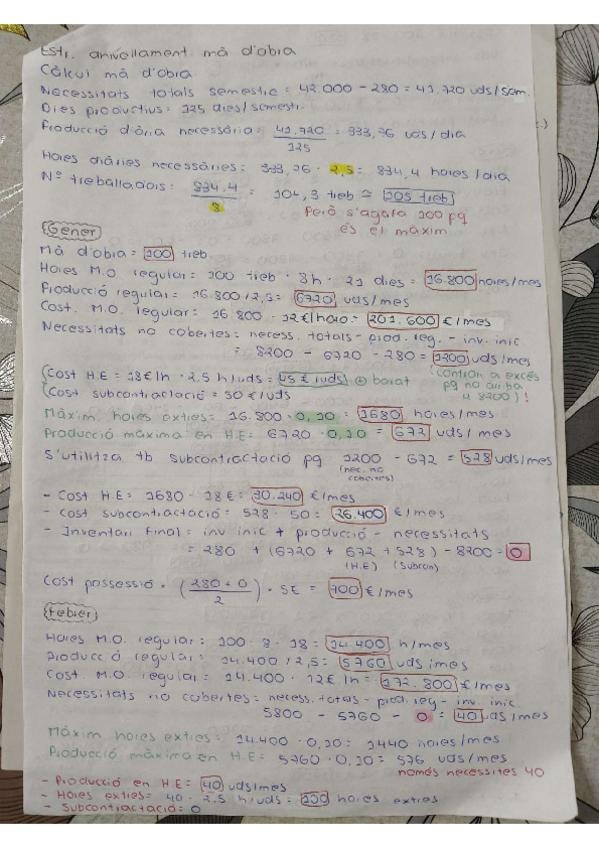 Estr. anivellament mà d'obra
Càlcul mà d'obra
Necessitats totals semestre = 42.000 - 280 = 41.720 uds/sem.
Dies productius = 125 dies/semestr.
Producció diària necessària = 41.720 / 125 = 333,76 uds/dia
Hores diàries necessàries = 333,76 · 2,5 = 834,4 hores/dia
Nº treballadors = 834,4 / 8 = 104,3 treb ≅ 105 treb
Però s'agafa 100 pq
és el màxim
Gener
Mà d'obra = 100 treb
Hores M.O. regular = 100 treb · 8h · 21 dies = 16.800 hores/mes
Producció regular = 16.800/2,5 = 6720 uds/mes
Cost. M.O. regular = 16.800 · 12€/hora = 201.600 €/mes
Necessitats no cobertes = necess. totals - prod. reg. - inv. inic
= 8200 - 6720 - 280 = 1200 uds/mes
(contrari a excés
pq no arriba
a 8200)!
Cost H.E = 18€/h · 2.5 h/uds = 45 €/uds ⊕ barat
Cost subcontractació = 50 €/uds
Màxim hores extres = 16.800 · 0,10 = 1680 hores/mes
Producció màxima en H.E = 6720 · 0,10 = 672 uds/mes
S'utilitza tb subcontractació pq 1200 - 672 = 528 uds/mes
(nec. no
cobertes)
- Cost H.E = 1680 · 18€ = 30.240 €/mes
- Cost subcontractació = 528 · 50 = 26.400 €/mes
- Inventari final = inv inic + producció - necessitats
= 280 + (6720 + 672 + 528) - 8200 = 0
(H.E) (Subcon)
Cost possessió = (280 + 0 / 2) · 5€ = 700 €/mes
Febrer
Hores M.O. regular = 100 · 8 · 18 = 14.400 h/mes
Producció regular = 14.400/2,5 = 5760 uds/mes
Cost. M.O. regular = 14.400 · 12€/h = 172.800 €/mes
Necessitats no cobertes = necess. totals - prod. reg - inv. inic
5800 - 5760 - 0 = 40 uds/mes
Màxim hores extres = 14.400 · 0,10 = 1440 hores/mes
Producció màxima en H.E = 5760 · 0,10 = 576 uds/mes
només necessites 40
- Producció en H.E = 40 uds/mes
- Hores extres = 40 · 2.5 h/uds = 100 hores extres
- Subcontractació = 0